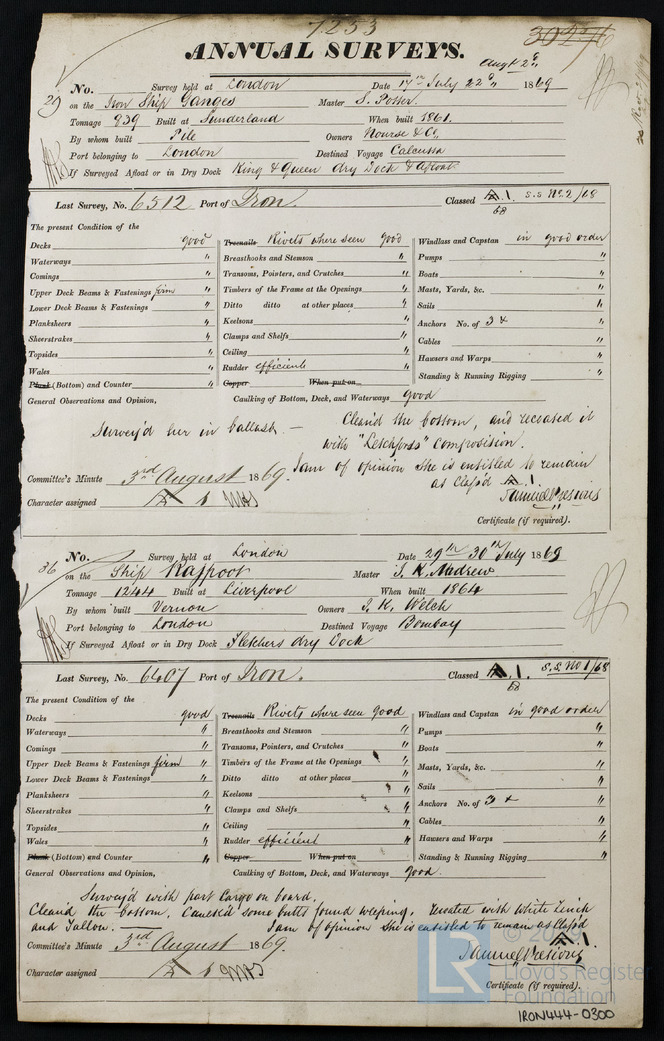 7253
ANNUAL SURVEYS.
Augt 2d
No. Survey held at London Date 17th July 22d 1869
29 on the Iron Ship Ganges Master S. Potter
Tonnage 939 Built at Sunderland When built 1861.
By whom built Pile Owners Nourse & Co
Port belonging to London Destined Voyage Calcutta
If Surveyed Afloat or in Dry Dock King & Queen dry Dock & afloat
Last Survey, No. 6512 Port of Iron. Classed A.1. S.S No.2/68
68
The present Condition of the
Decks good Treenails Rivets where seen good Windlass and Capstan in good order
Waterways " Breasthooks and Stemson " Pumps "
Comings " Transoms, Pointers, and Crutches " Boats "
Upper Deck Beams & Fastenings firm " Timbers of the Frame at the Openings " Masts, Yards, &c. "
Lower Deck Beams & Fastenings " Ditto ditto at other places " Sails "
Planksheers " Keelsons " Anchors No. of 3 + "
Sheerstrakes " Clamps and Shelfs " Cables "
Topsides " Ceiling " Hawsers and Warps "
Wales " Rudder efficient " Standing & Running Rigging "
Plank (Bottom) and Counter " Copper When put on
General Observations and Opinion, Caulking of Bottom, Deck, and Waterways good
Survey'd her in ballast. — Clean'd the bottom, and recoated it
with "Letchfords" composition.
I am of opinion she is entitled to remain
Committee's Minute 3rd August 1869.
as Class'd A.1.
Character assigned A 1
Certificate (if required).
No. Survey held at London Date 29th 30th July 1869
36 on the Ship Rajpoot Master
Tonnage 1244 Built at Liverpool When built 1864
By whom built Vernon Owners J. K. Welch
Port belonging to London Destined Voyage Bombay
If Surveyed Afloat or in Dry Dock Fletchers dry Dock
Last Survey, No. 6407 Port of Iron. Classed A.1. S.S. No 1/68
68
The present Condition of the
Decks good Treenails Rivets where seen good Windlass and Capstan in good order
Waterways " Breasthooks and Stemson " Pumps "
Comings " Transoms, Pointers, and Crutches " Boats "
Upper Deck Beams & Fastenings firm " Timbers of the Frame at the Openings " Masts, Yards, &c. "
Lower Deck Beams & Fastenings " Ditto ditto at other places " Sails "
Planksheers " Keelsons " Anchors No. of 3 + "
Sheerstrakes " Clamps and Shelfs " Cables "
Topsides " Ceiling " Hawsers and Warps "
Wales " Rudder efficient " Standing & Running Rigging "
Plank (Bottom) and Counter " Copper When put on
General Observations and Opinion, Caulking of Bottom, Deck, and Waterways good.
Survey'd with part Cargo on board.
Clean'd the bottom, Caulk'd some butts found weeping, recoated with White Zinch
and Tallow. I am of opinion she is entitled to remain as Class'd
A.1.
Committee's Minute 3rd August 1869.
Character assigned A 1
Certificate (if required).
LR
Lloyd's Register
Foundation
IRON444-0300